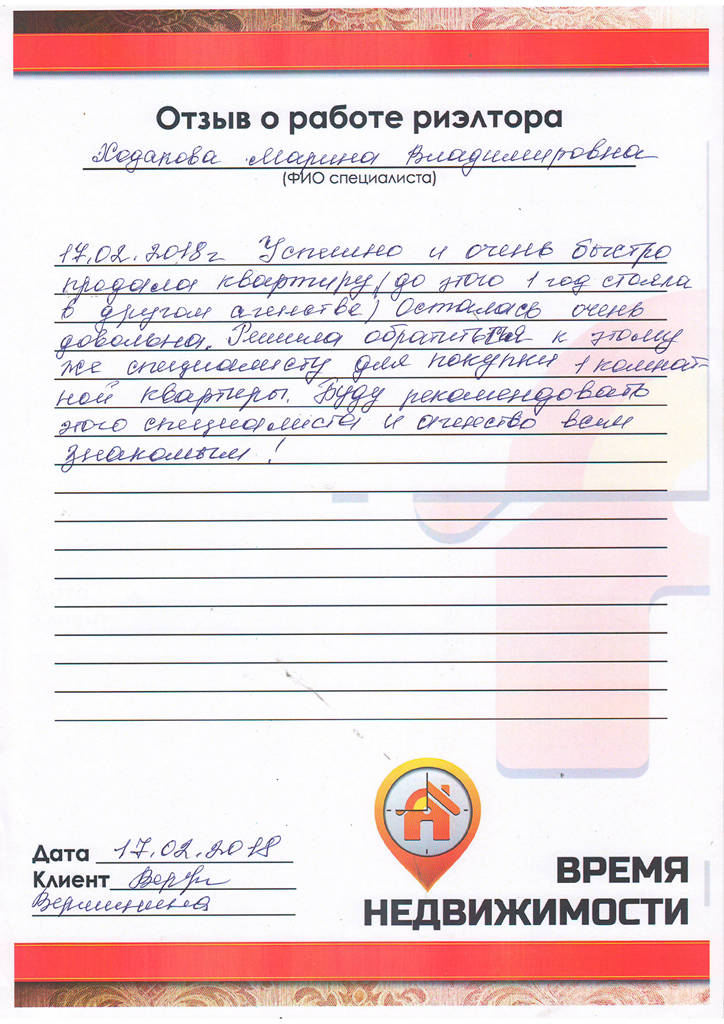 Отзыв о работе риэлтора
Ходарова Марина Владимировна
(ФИО специалиста)
17.02.2018г Успешно и очень быстро
продала квартиру (до этого 1 год стояла
в другом агенстве) Осталась очень
довольна. Решила обратиться к этому
же специалисту для покупки 1 комнат-
ной квартиры. Буду рекомендовать
этого специалиста и агенство всем
знакомым!
Дата 17.02.2018
Клиент
Вершинина
ВРЕМЯ
НЕДВИЖИМОСТИ